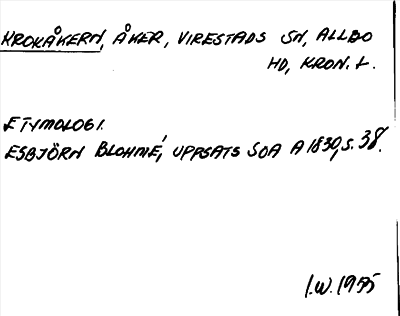 KROKÅKERN, ÅKER, VIRESTADS SN, ALLBO
HD, KRON. L.
ETYMOLOGI.
ESBJÖRN BLOHMÉ, UPPSATS SOA A 1830, S. 38.
I.W. 1975